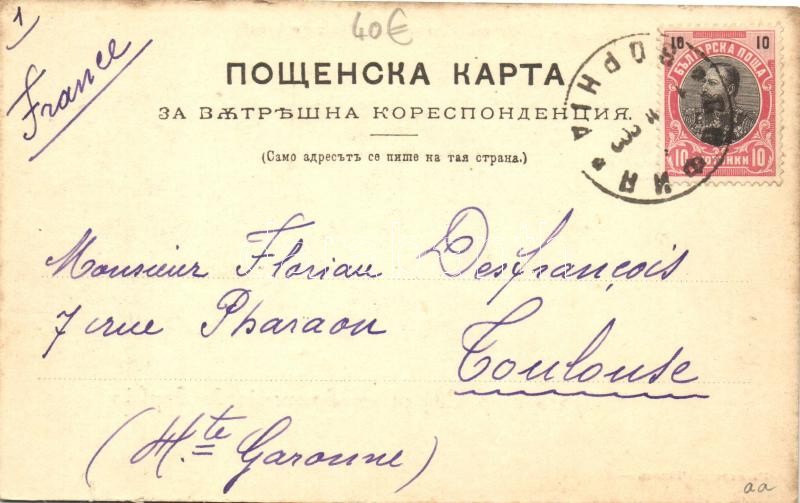 1
40€
France
ПОЩЕНСКА КАРТА
ЗА ВѪТРѢШНА КОРЕСПОНДЕНЦИЯ.
(Само адресътъ се пише на тая страна.)
10 10
БЪЛГАРСКА ПОЩА
10 СТОТИНКИ 10
Monsieur Florian Desfrançois
7 rue Pharaon
Toulouse
(Hte Garonne)
aa